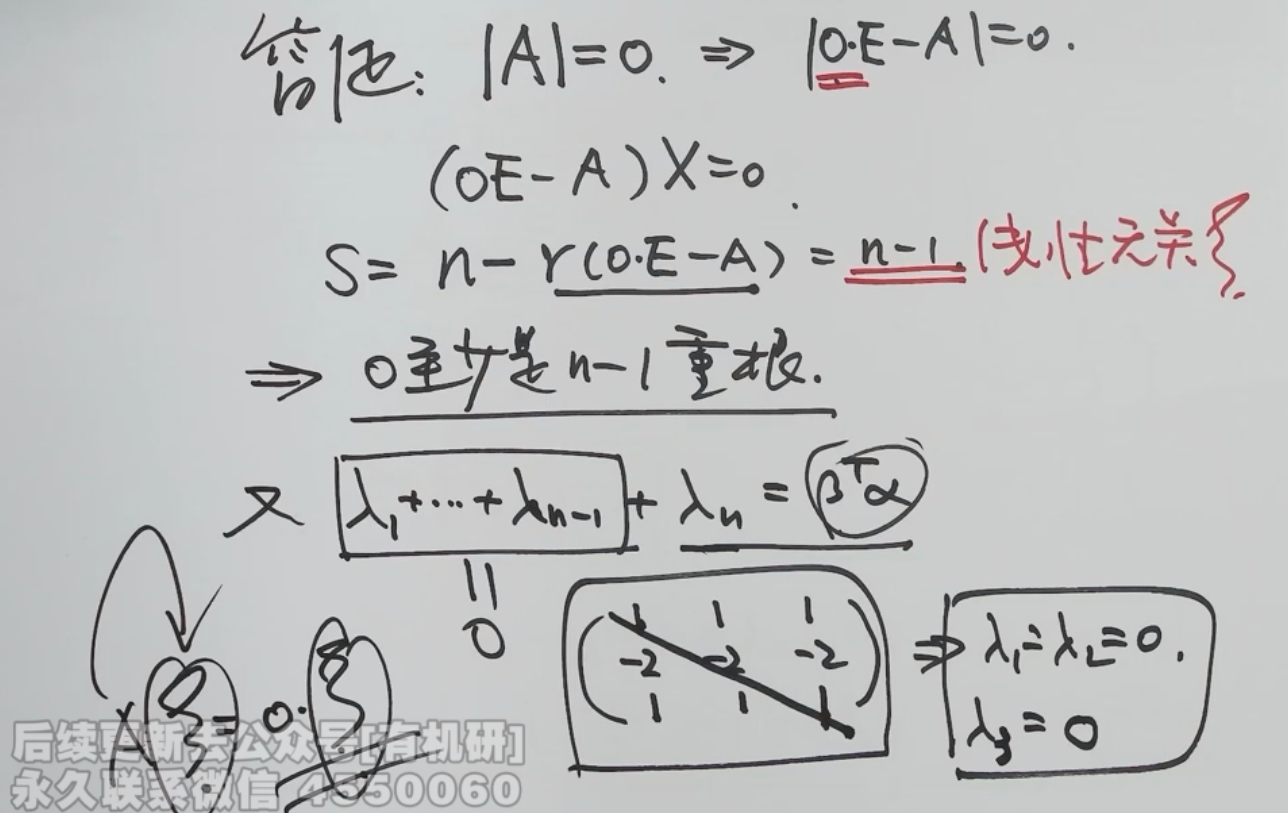 |A|=0. ⇒ |0·E-A|=0.
(0E-A)X=0.
S= n-r(0·E-A) = n-1. 线性无关ξ.
⇒ 0至少是n-1重根.
又 λ₁+…+λₙ₋₁+λₙ = βᵀα
=
0
1 1 1
-2 -2 -2
1 1 1
⇒ λ₁=λ₂=0.
λ₃=0
Aξ=0·ξ
后续更新去公众号[有机研]
永久联系微信 4550060